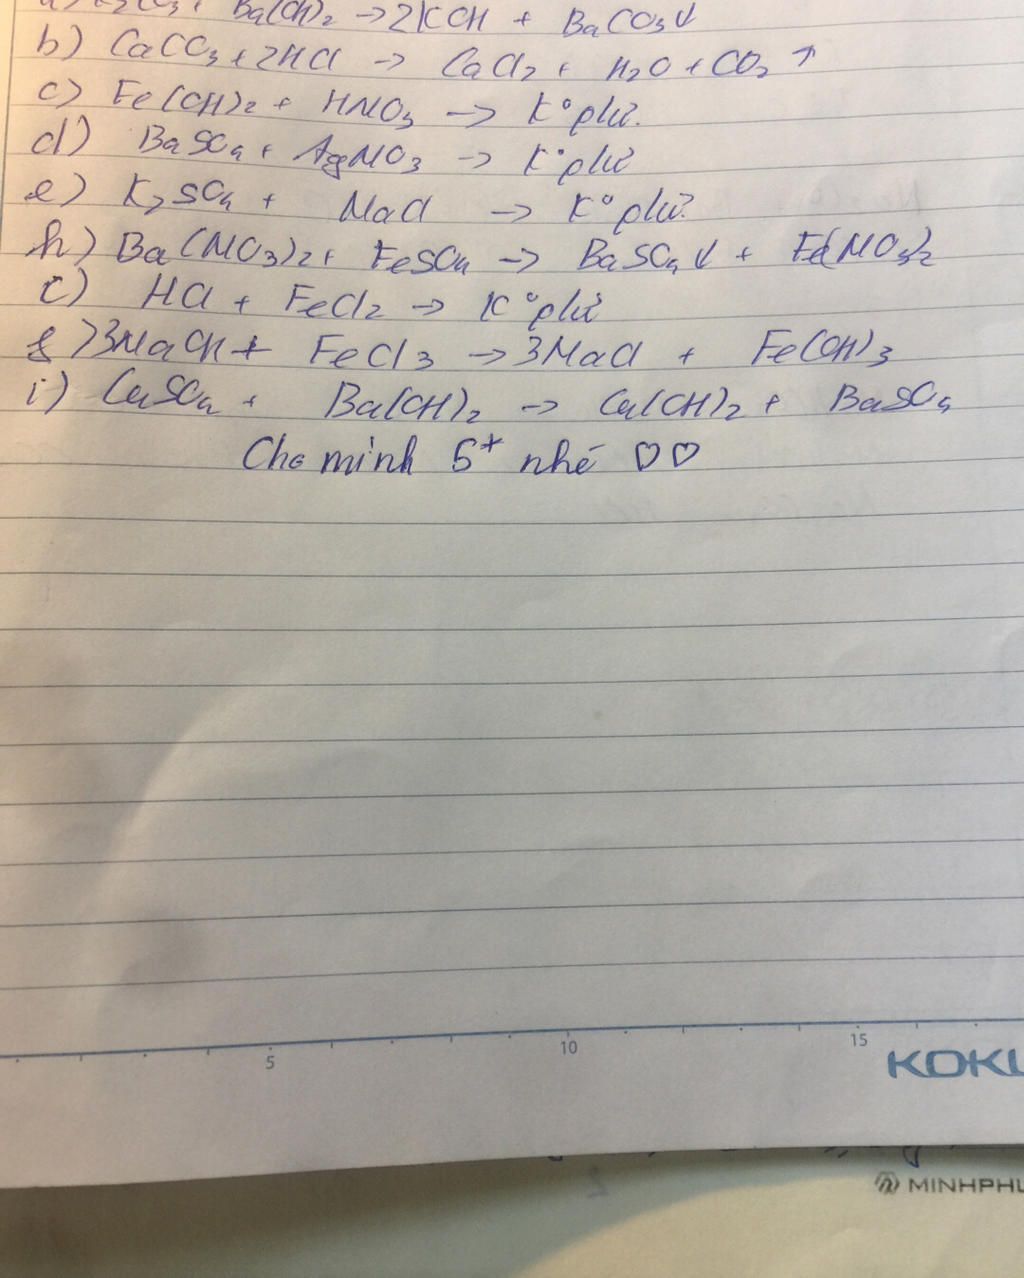 a) K₂CO₃ + Ba(OH)₂ → 2KOH + BaCO₃↓
b) CaCO₃ + 2HCl → CaCl₂ + H₂O + CO₂ ↑
c) Fe(OH)₂ + HNO₃ → K° pứ.
d) BaSO₄ + AgNO₃ → K° pứ
e) K₂SO₄ + NaCl → K° pứ
h) Ba(NO₃)₂ + FeSO₄ → BaSO₄↓ + Fe(NO₃)₂
i) HCl + FeCl₂ → K° pứ
g) 3NaOH + FeCl₃ → 3NaCl + Fe(OH)₃
i) CuSO₄ + Ba(OH)₂ → Cu(OH)₂ + BaSO₄
Cho mình 5* nhé ♡♡
5 10 15
KOKU
MINHPHU